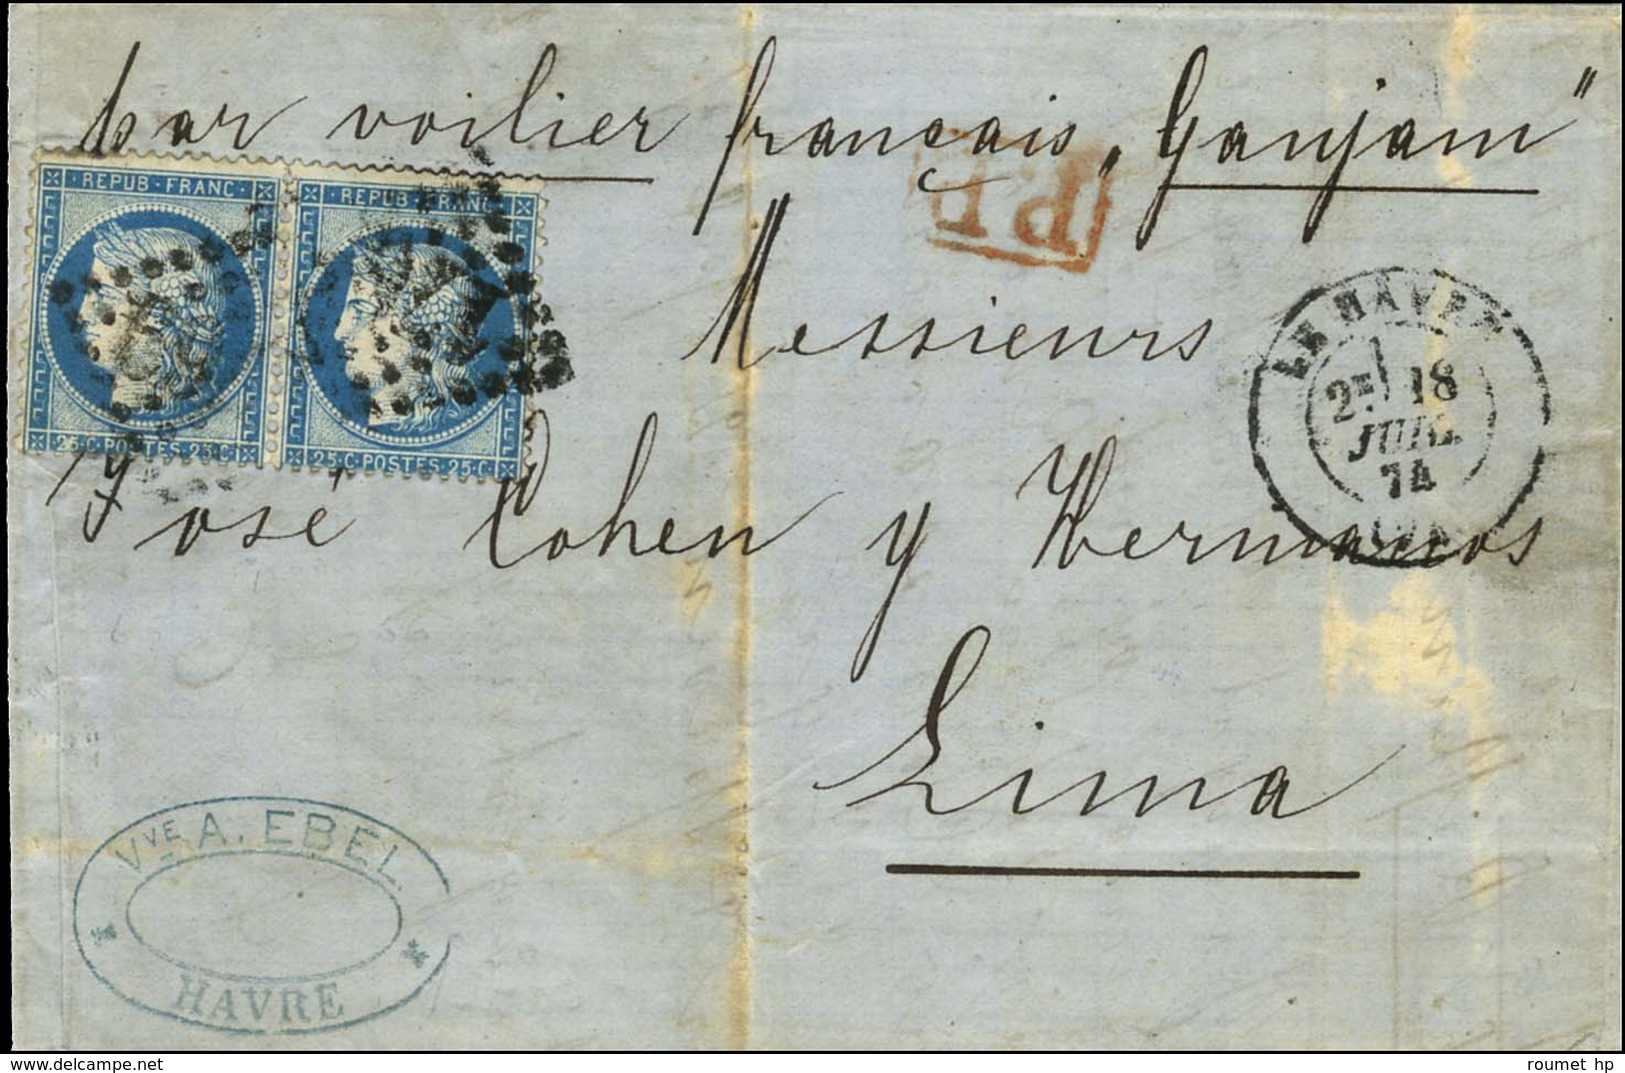 par voilier français „Ganjam"
REPUB·FRANC·
REPUB·FRANC·
P.P.
Messieurs
LE HAVRE
2E 18
JUIL.
74
25·C·POSTES·25·C·
25·C·POSTES·25·C·
José Cohen y Hermanos
Lima
VVE A. EBEL
HAVRE
www.delcampe.net
roumet hp